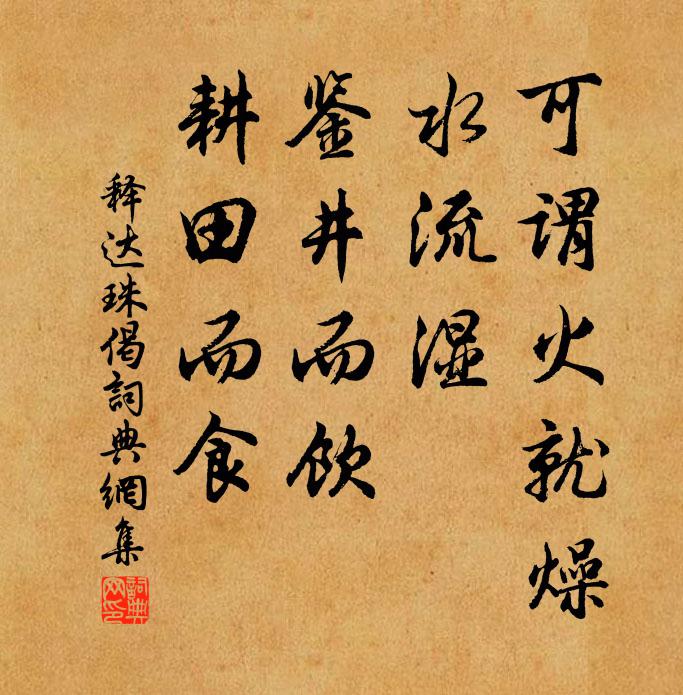 可谓火就燥
水流湿
鉴井而饮
耕田而食
释达珠偈詞典網集
詞典网印